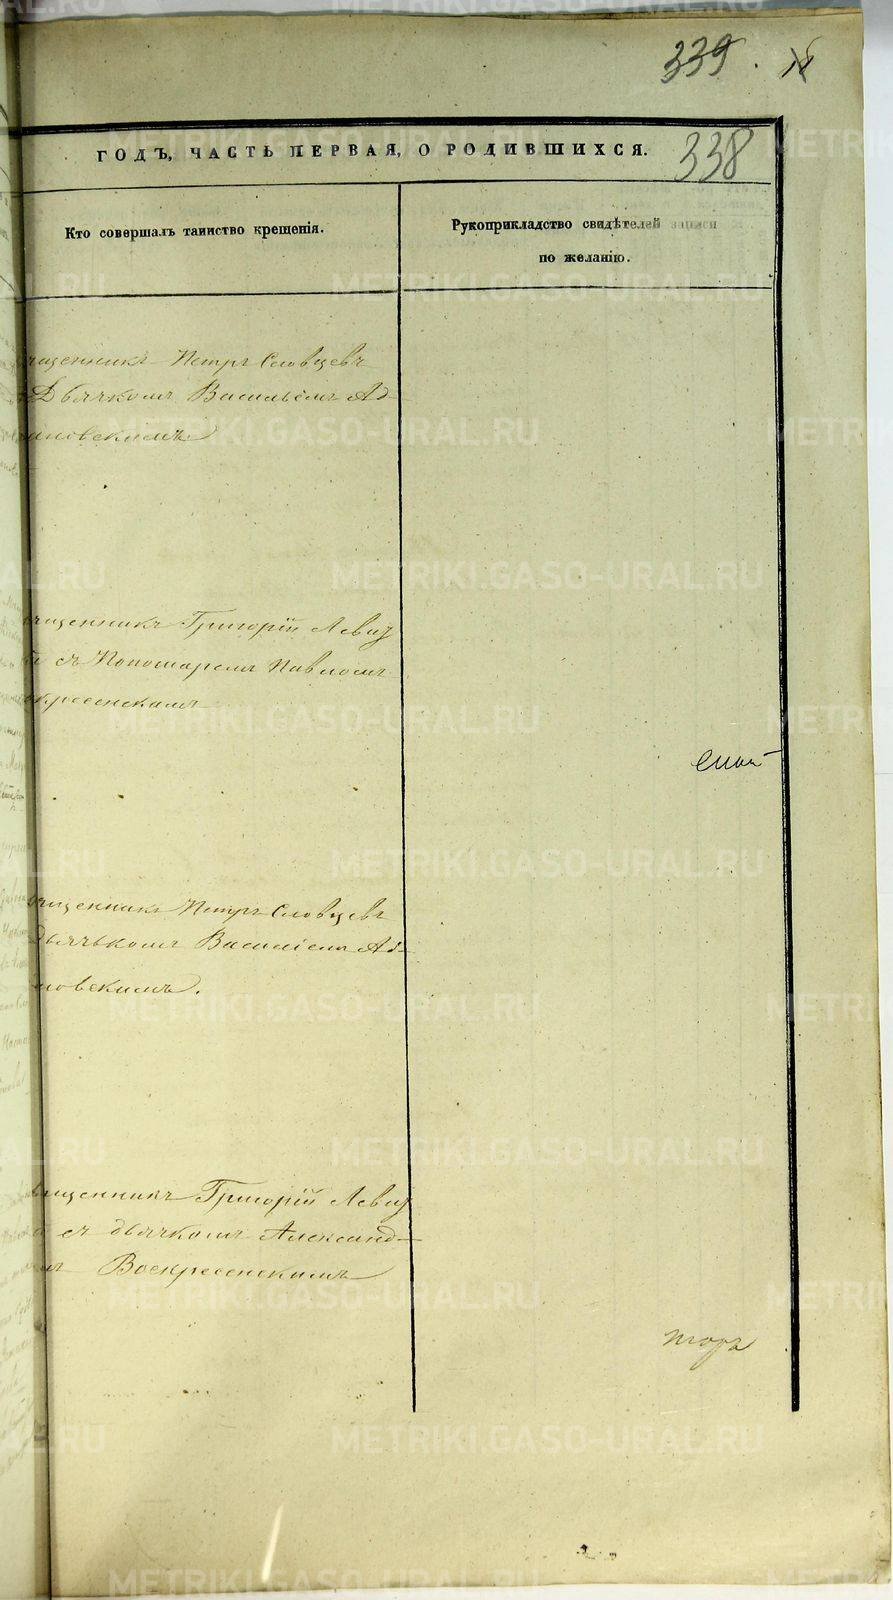 339.
ГОДЪ, ЧАСТЬ ПЕРВАЯ, О РОДИВШИХСЯ. 338
Кто совершалъ таинство крещенія.
Рукоприкладство свидѣтелей записи
по желанію.
щенникъ Петръ Словцевъ
Дьячкомъ Васильемъ Ад-
ановскимъ
щенникъ Григорій Левиц
съ Пономаремъ Павломъ
скресенскимъ
щенникъ Петръ Словцевъ
дьячькомъ Василіемъ Ад-
новскимъ.
ященникъ Григорій Левиц
съ дьячкомъ Александ-
мъ Воскресенскимъ
METRIKI.GASO-URAL.RU